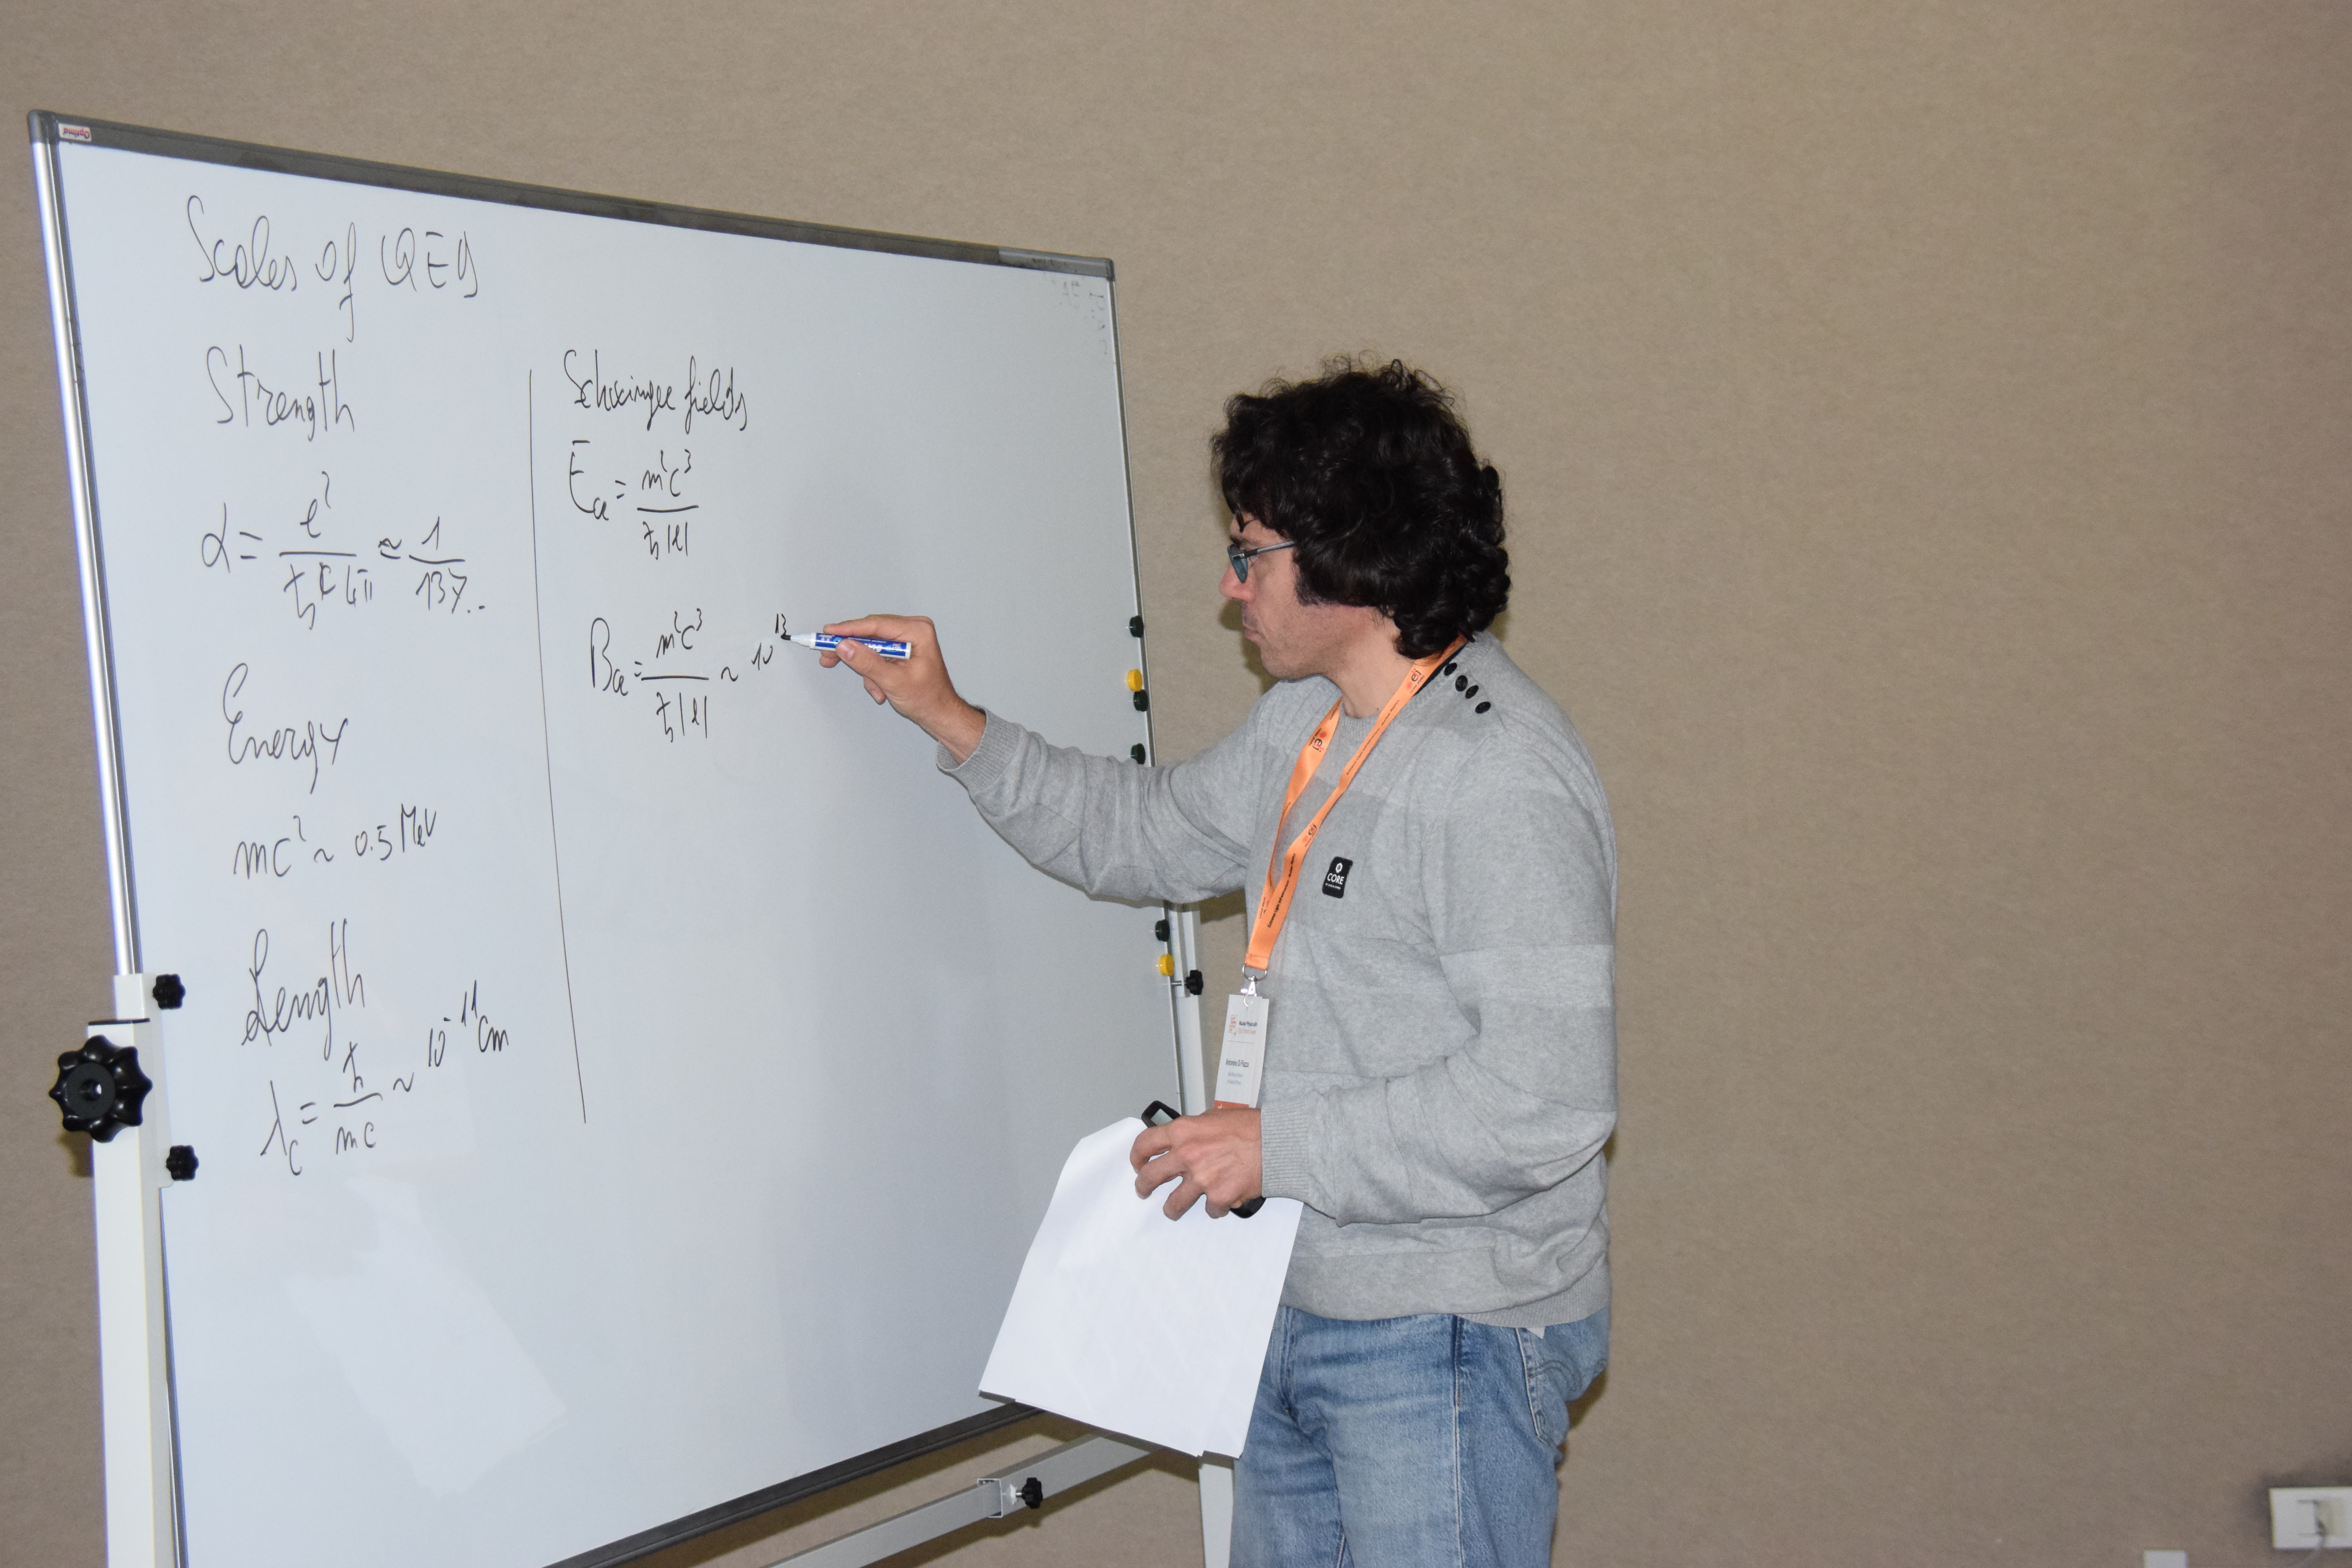 Optima
Scales of QED
Strength
α = e² / ħc 4π ≃ 1 / 137..
Energy
mc² ~ 0.5 MeV
Length
λc = ħ / mc ~ 10⁻¹¹ cm
Schwinger fields
Ecr = m²c³ / ħ|e|
Bcr = m²c³ / ħ|e| ~ 10¹³
CORE